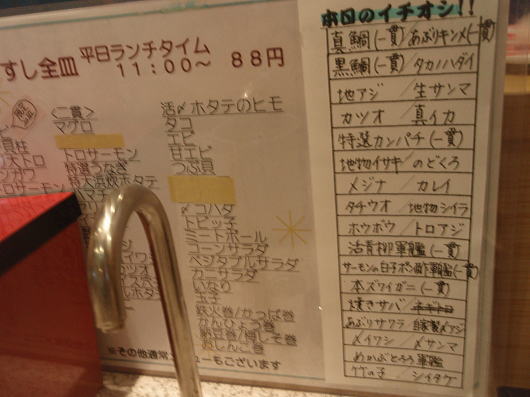 すし全皿 平日ランチタイム
11:00～ 88円
<二貫>
マグロ
トロサーモン
特選うなぎ
活〆ホタテのヒモ
タコ
エビ
甘エビ
つぶ貝
〆コハダ
トビッ子
ミートボール
コーンサラダ
ベジタブルサラダ
カニサラダ
いなり
玉子
鉄火巻/かっぱ巻
かんぴょう巻
納豆巻/梅しそ巻
お しんこ巻
※その他通常 ューもございます
本日のイチオシ!!
真鯛(一貫)あぶりキンメ(一貫)
黒鯛(一貫)/タカノハダイ
地アジ/生サンマ
カツオ/真イカ
特選カンパチ(一貫)
地物イサキ/のどくろ
メジナ/カレイ
タチウオ/地物シイラ
ホウボウ/トロアジ
活青柳軍艦(一貫)
サーモンの白子ポン酢軍艦(一貫)
本ズワイガニ(一貫)
焼きサバ/ネギトロ
あぶりサワラ/自家製〆アジ
〆イワシ/〆サンマ
めかぶとろろ軍艦
竹の子/シイタケ